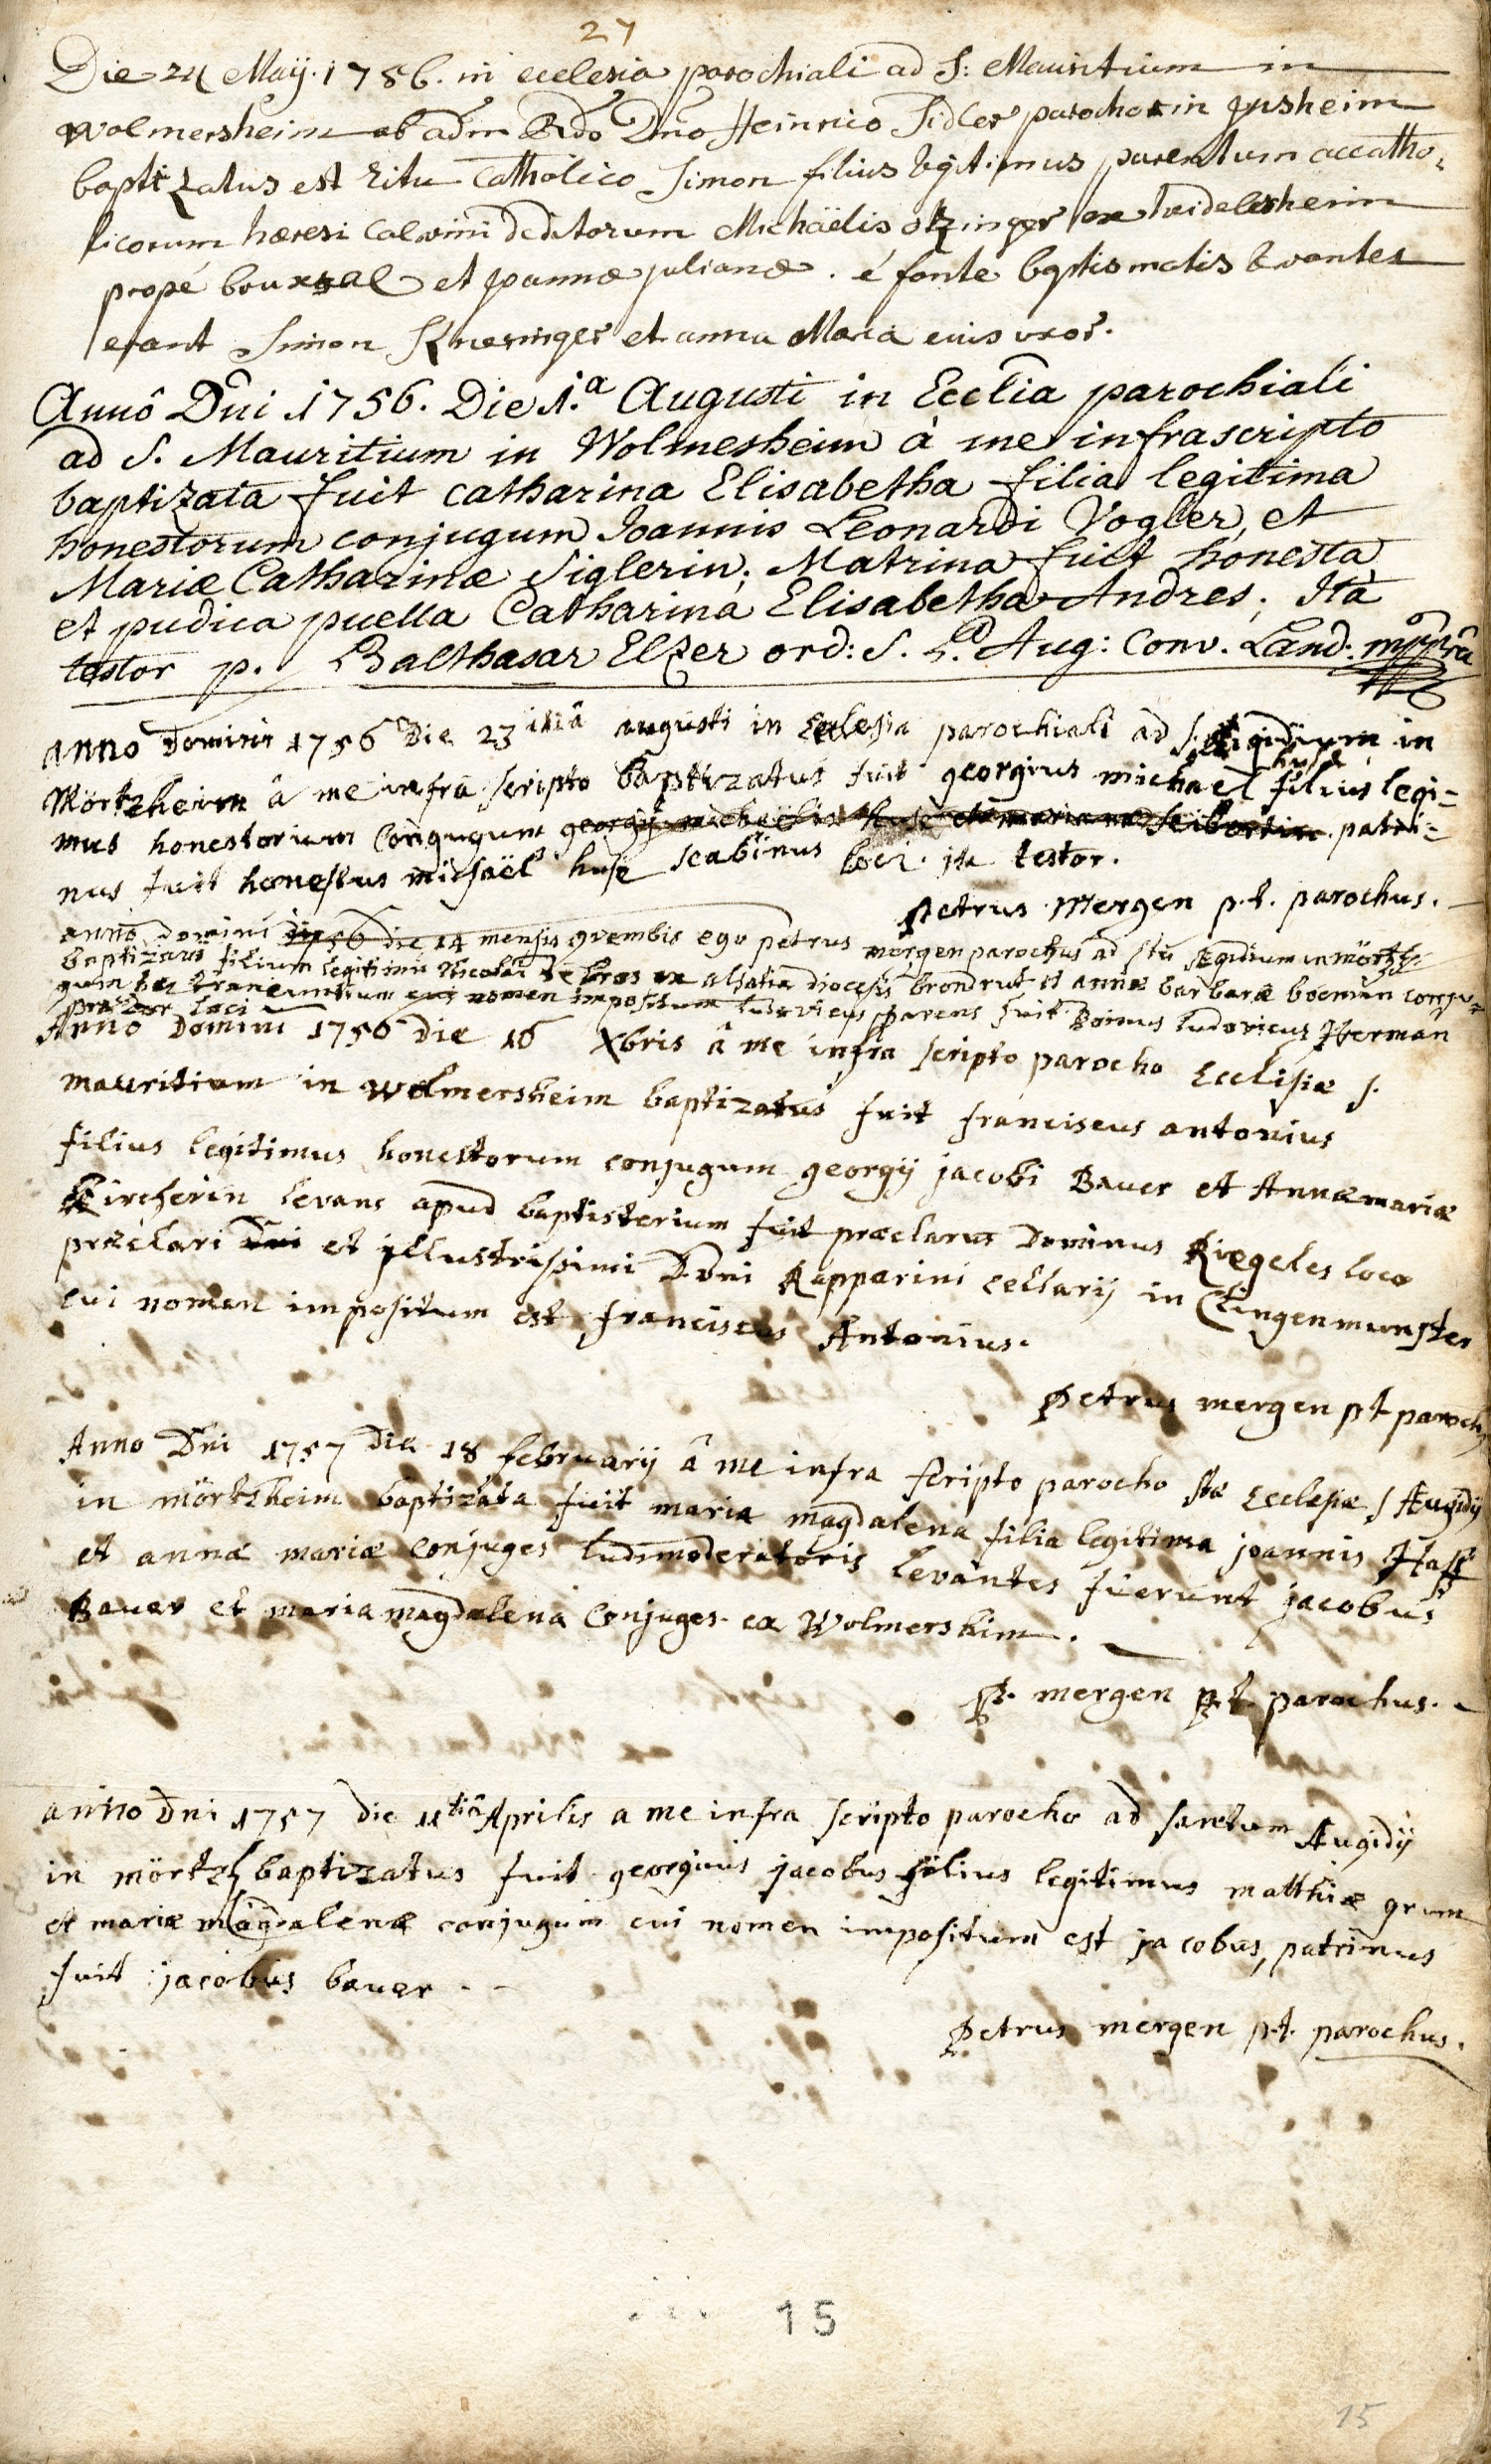 27
Die 24 Maÿ. 1756. in ecclesia parochiali ad S: Mauritium in
Wolmersheim ab adm Rdo Dno Heinrico Fidler parocho in
baptizatus est ritu Catholico Simon filius legitimus parentum accatho,
licorum hæresi Calvini deditorum Michäelis otzinger ex heidelesheim
propé bruxsal et joannæ julianæ. é fonte baptismatis levantes
erant Simon et anna Maria eius uxor.
Annô Dñi 1756. Die 1.a Augusti in Ecclia parochiali
ad S. Mauritium in Wolmesheim à me infrascripto
baptizata fuit catharina Elisabetha filia legitima
honestorum conjugum Joannis Leonardi Vogler, et
Mariæ Catharinæ Siglerin; Matrina fuit honesta
et pudica puella Catharina Elisabetha Andres; Ità
testor p. Balthasar Elzer ord: S. P. Aug: Conv. Land. mppria
anno Domini 1756 Die 23 augusti in Ecclesia parochiali ad S. Ægidium in
huse
Mörtzheim â me infra scripto baptizatus fuit georgius michael filius legi=
mus honestorium Congugum georgÿ michaëlis huse et mariannæ seibertin patri=
nus fuit honestus michaël huse scabinus loci. ita testor.
Petrus Mergen p.t. parochus.
anno domini 1756 die 14 mensis 9vembis ego petrus mergen parochus ad stu Ægidium in mörtzh
baptizavi filium legitimu Nicolai de bros ex alsatia diocesis brondrut et annæ barbaræ boemin conju=
gum hac transeuntium cui nomen impositum ludovicus parens fuit Domus ludovicus Herman
prætor loci
Anno Domini 1756 die 16 Xbris â me infra scripto parocho Ecclisiæ S.
mauritium in wolmersheim baptizatus fuit franciscus antonius
filius legitimus honestorum conjugum georgÿ jacobi Bauer et Annæ mariæ
Kircherin levans apud baptisterium fuit præclarus Dominus Riegeles loco
præclari Dni et jllustrissimi Dni Rapparini cellarÿ in Clingenmunster
cui nomen impositum est franciscus Antonius.
Petrus mergen pt paroch
Anno Dni 1757 die 18 februarÿ â me infra scripto parocho stæ Ecclesiæ S Æugidÿ
in mörtzheim baptizata fuit maria magdalena filia legitima joannis Haff
et annæ mariæ conjuges ludimoderatoris levantes fuerunt jacobus
Bauer et maria magdalena Conjuges ex Wolmershim.
P. mergen p.t. parochus.
anno Dni 1757 die 11tiâ Aprilis a me infra scripto parocho ad sanctum Æugidÿ
in mörtzh baptizatus fuit georgius jacobus filius legitimus matthiæ grum
et mariæ magdalenæ conjugum cui nomen impositum est jacobus, patrinus
fuit jacobus bauer
Petrus mergen p.t. parochus.
15
15